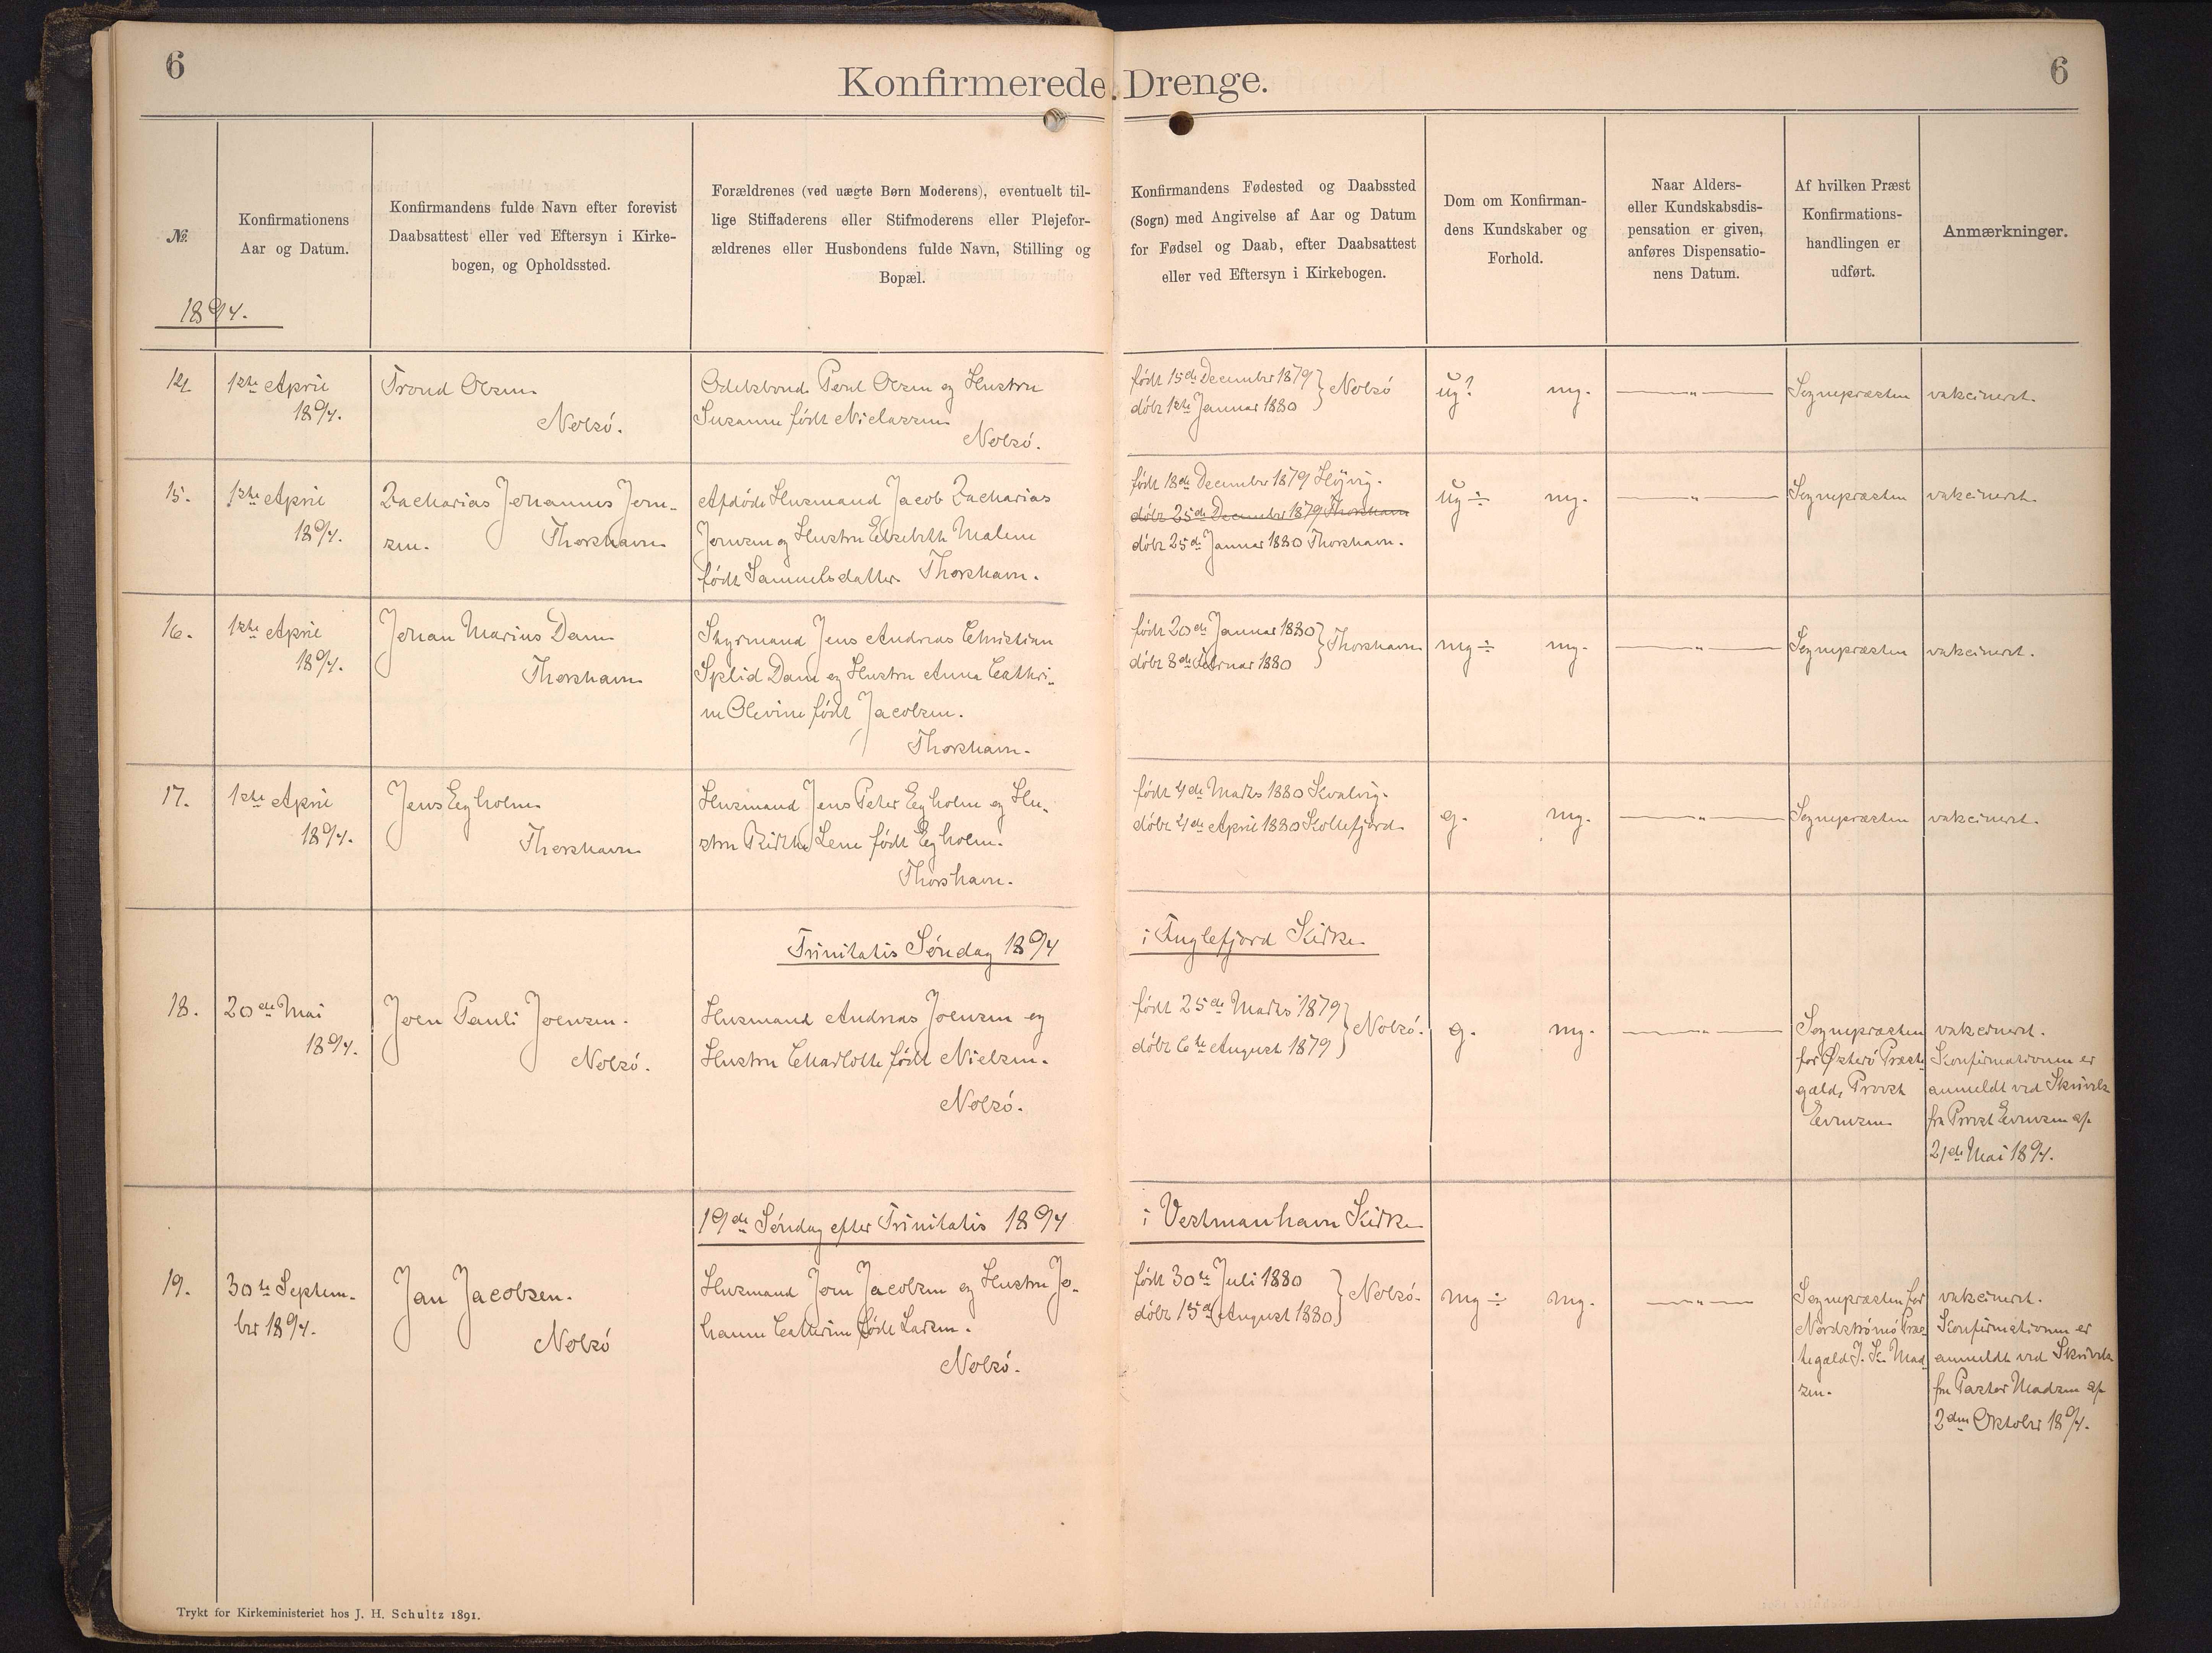 6
Konfirmerede Drenge.
6
№
Konfirmationens
Aar og Datum.
Konfirmandens fulde Navn efter forevist
Daabsattest eller ved Eftersyn i Kirke-
bogen, og Opholdssted.
Forældrenes (ved uægte Børn Moderens), eventuelt til-
lige Stiffaderens eller Stifmoderens eller Plejefor-
ældrenes eller Husbondens fulde Navn, Stilling og
Bopæl.
Konfirmandens Fødested og Daabssted
(Sogn) med Angivelse af Aar og Datum
for Fødsel og Daab, efter Daabsattest
eller ved Eftersyn i Kirkebogen.
Dom om Konfirman-
dens Kundskaber og
Forhold.
Naar Alders-
eller Kundskabsdis-
pensation er given,
anføres Dispensatio-
nens Datum.
Af hvilken Præst
Konfirmations-
handlingen er
udført.
Anmærkninger.
1894.
14
1ste April
1894.
Trond Olsen
Nolsö.
Odelsbonde Poul Olsen og Hustru
Susanne født Niclassen
Nolsö.
født 15de December 1879
døbt 1ste Januar 1880
} Nolsö
ug?
mg.
— " —
Sognepræsten
vakcineret.
15.
1ste April
1894.
Zacharias Johannes Joen-
sen.
Thorshavn
Afdøde Husmand Jacob Zacharias
Joensen og Hustru Elsebeth Malene
født Samuelsdatter Thorshavn.
født 18de December 1879 Höjvig.
døbt 25de December 1879 Thorshavn
døbt 25de Januar 1880 Thorshavn.
ug ÷
mg.
— " —
Sognepræsten
vakcineret.
16.
1ste April
1894.
Johan Marius Dam
Thorshavn
Styrmand Jens Andreas Christian
Splid Dam og Hustru Anna Cathri-
ne Olevine født Jacobsen.
Thorshavn.
født 20de Januar 1880
døbt 8de Februar 1880
} Thorshavn
mg ÷
mg.
— " —
Sognepræsten
vakcineret.
17.
1ste April
1894.
Jens Egholm
Thorshavn
Husmand Jens Peter Egholm og Hu-
stru Birthe Lene født Egholm.
Thorshavn.
født 4de Marts 1880 Kvalvig.
døbt 4de April 1880 Kollefjord.
g.
mg.
— " —
Sognepræsten
vakcineret.
Trinitatis Søndag 1894
i Fuglefjord Kirke
18.
20de Mai
1894.
Joen Pauli Joensen.
Nolsö.
Husmand Andreas Joensen og
Hustru Charlotte født Nielsen.
Nolsö.
født 25de Marts 1879
døbt 6te August 1879
} Nolsö.
g.
mg.
— " —
Sognepræsten
for Østerö Præste-
gæld, Provst
Evensen
vakcineret.
Konfirmationen er
anmeldt ved Skrivelse
fra Provst Evensen af
21de Mai 1894.
19de Søndag efter Trinitatis 1894
i Vestmanhavn Kirke
19.
30te Septem-
ber 1894.
Jan Jacobsen.
Nolsö
Husmand Joen Jacobsen og Hustru Jo-
hanne Cathrine født Larsen.
Nolsö.
født 30te Juli 1880
døbt 15de August 1880
} Nolsö.
mg ÷
mg.
— " —
Sognepræsten for
Nordströmö Præs-
tegæld J. K. Mad-
sen.
vakcineret.
Konfirmationen er
anmeldt ved Skrivelse
fra Pastor Madsen af
2den Oktober 1894.
Trykt for Kirkeministeriet hos J. H. Schultz 1891.